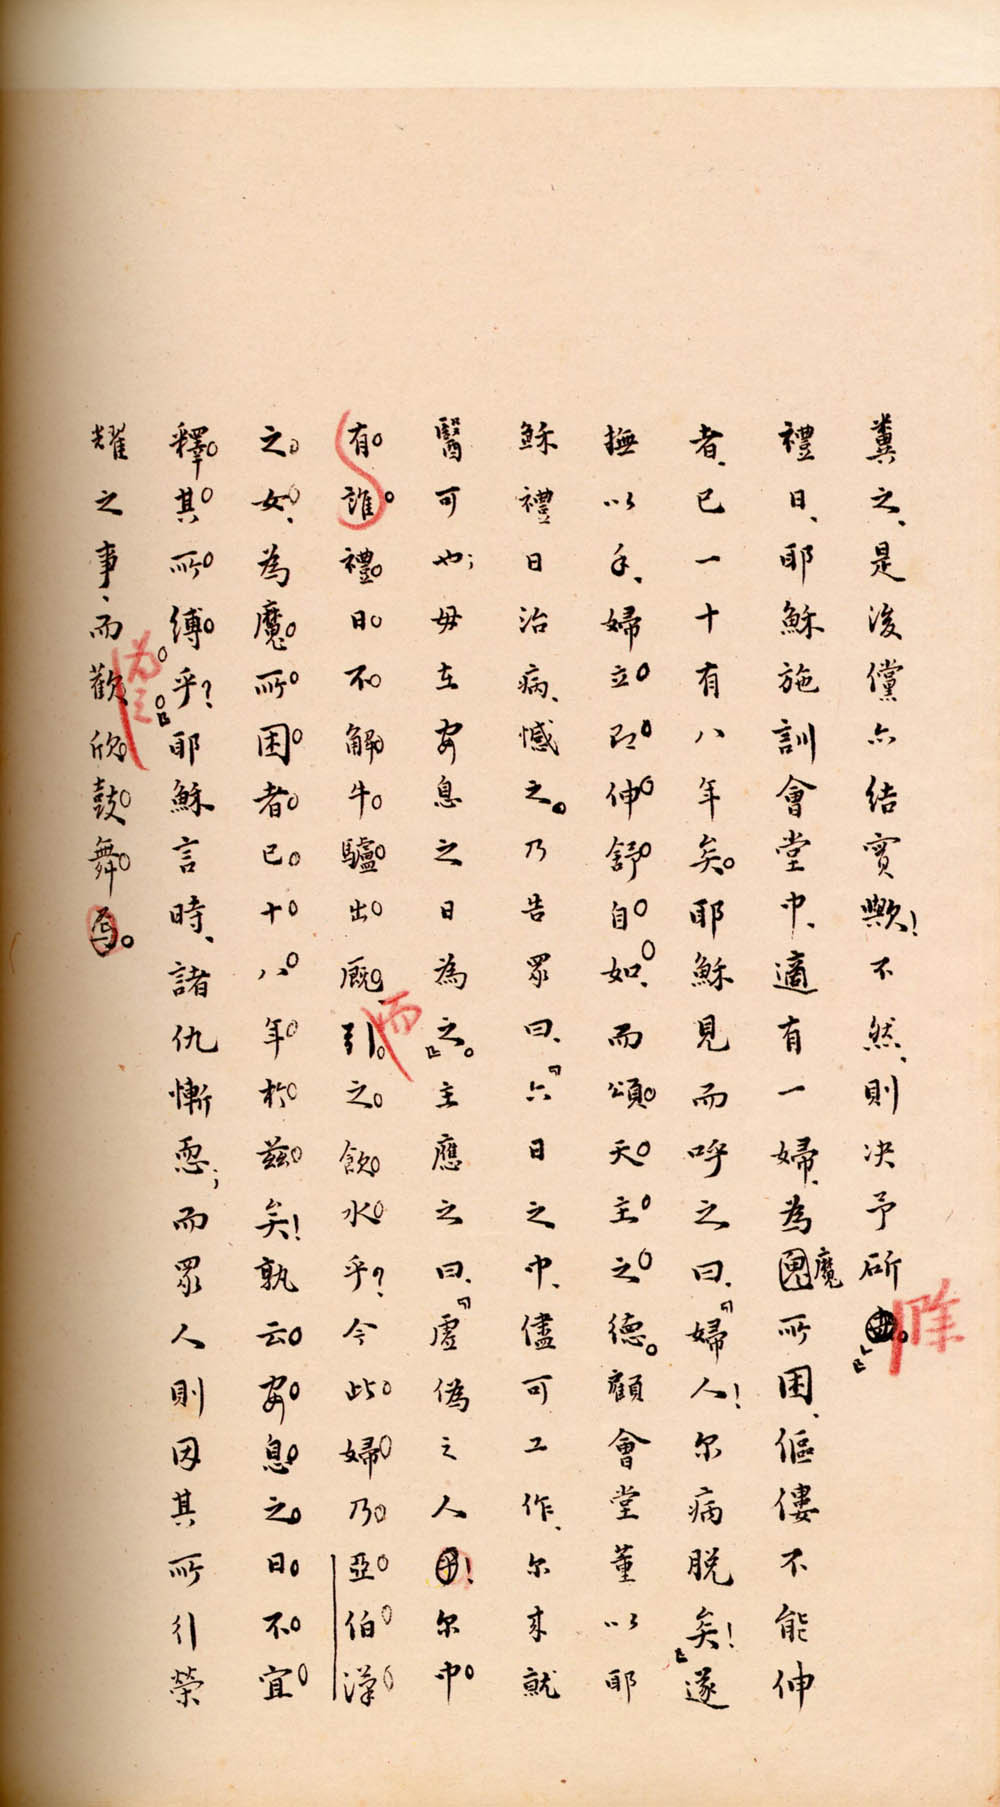 糞之、是後儻亦結實歟！不然、則決予斫除。』
禮日、耶穌施訓會堂中、適有一婦、為魔所困、傴僂不能伸
者、已一十有八年矣。耶穌見而呼之曰、『婦人！尔病脱矣！』遂
撫以手、婦立即伸舒自如、而頌天主之德。顧會堂董以耶
穌禮日治病、憾之。乃告眾曰、『六日之中、儘可工作、尔來就
醫可也；毋在安息之日為之。』主應之曰、『虛偽之人！尔中
有誰禮日不解牛驢出厩、而引之飲水乎？今此婦乃亞伯漢
之女、為魔所困者已十八年於茲矣！孰云安息之日不宜
釋其所縛乎？』耶穌言時、諸仇慚恧；而眾人則因其所行榮
耀之事、而歡欣鼓舞焉。